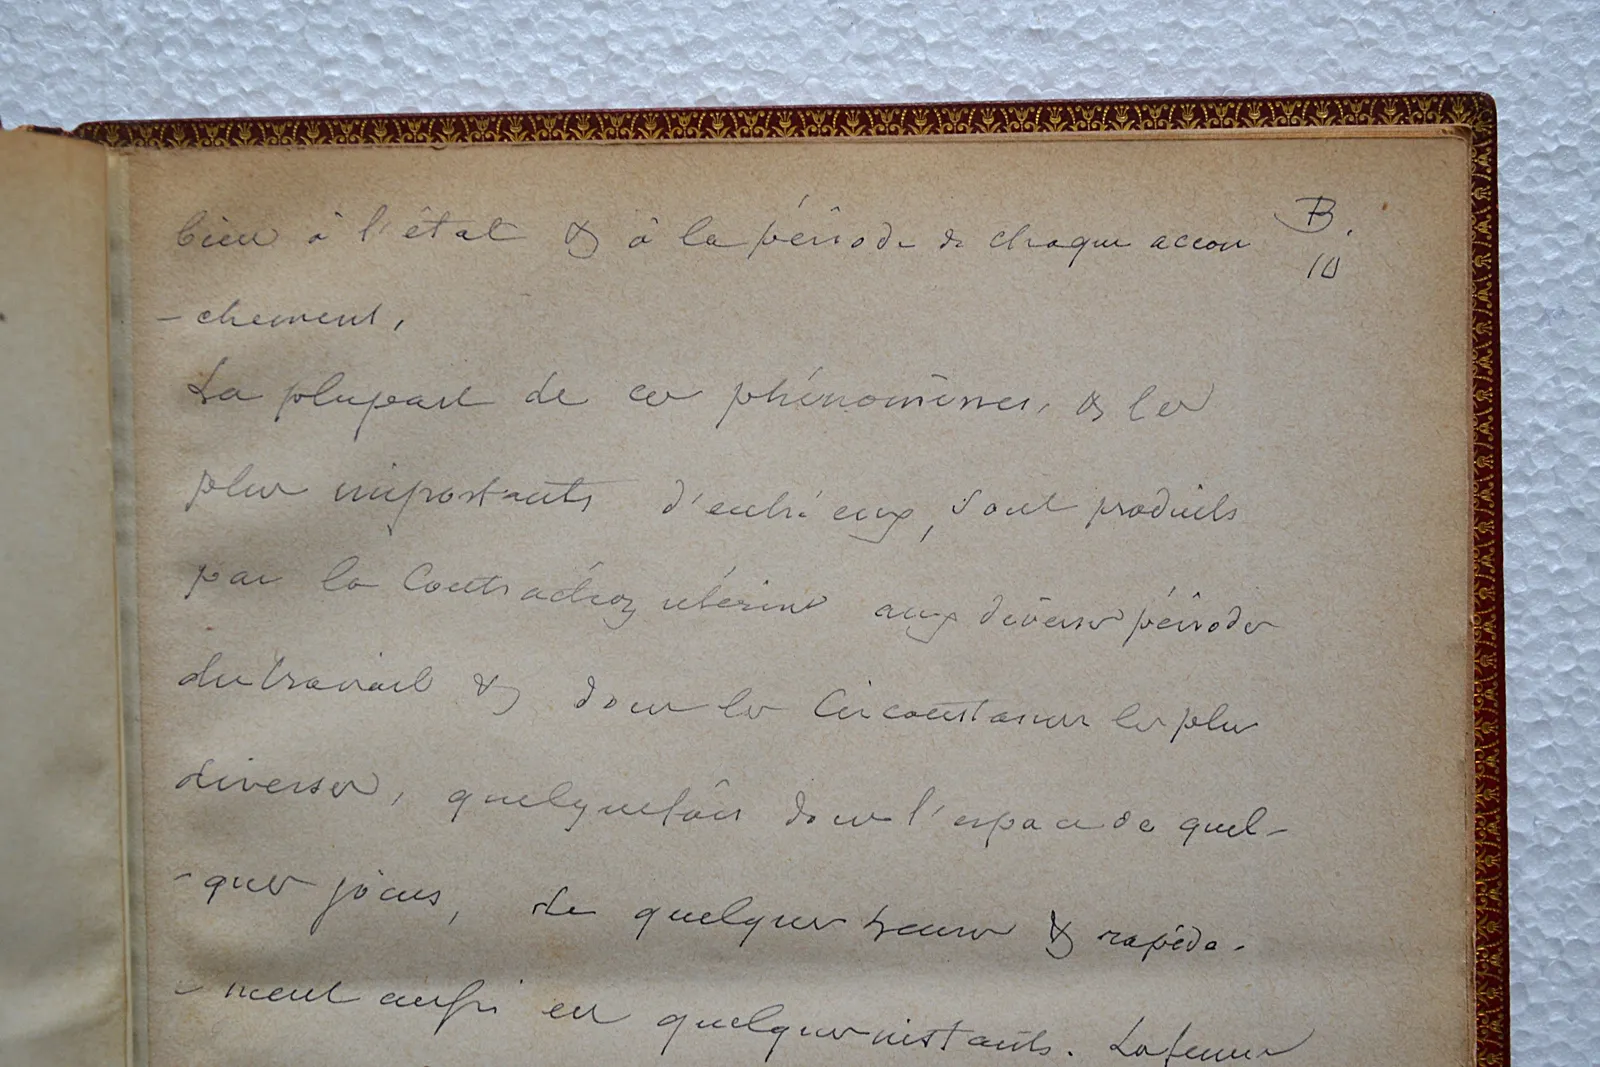 bien à l'état & à la période de chaque accou
B.
10
-chement,
La plupart de ces phénomènes, & les
plus importants d'entr'eux, sont produits
par la Contraction utérine aux diverses périodes
du travail & dans les Circonstances les plus
diverses, quelquefois dans l'espace de quel-
-ques jours, de quelques heures & rapide-
-ment aussi en quelques instants. La femme